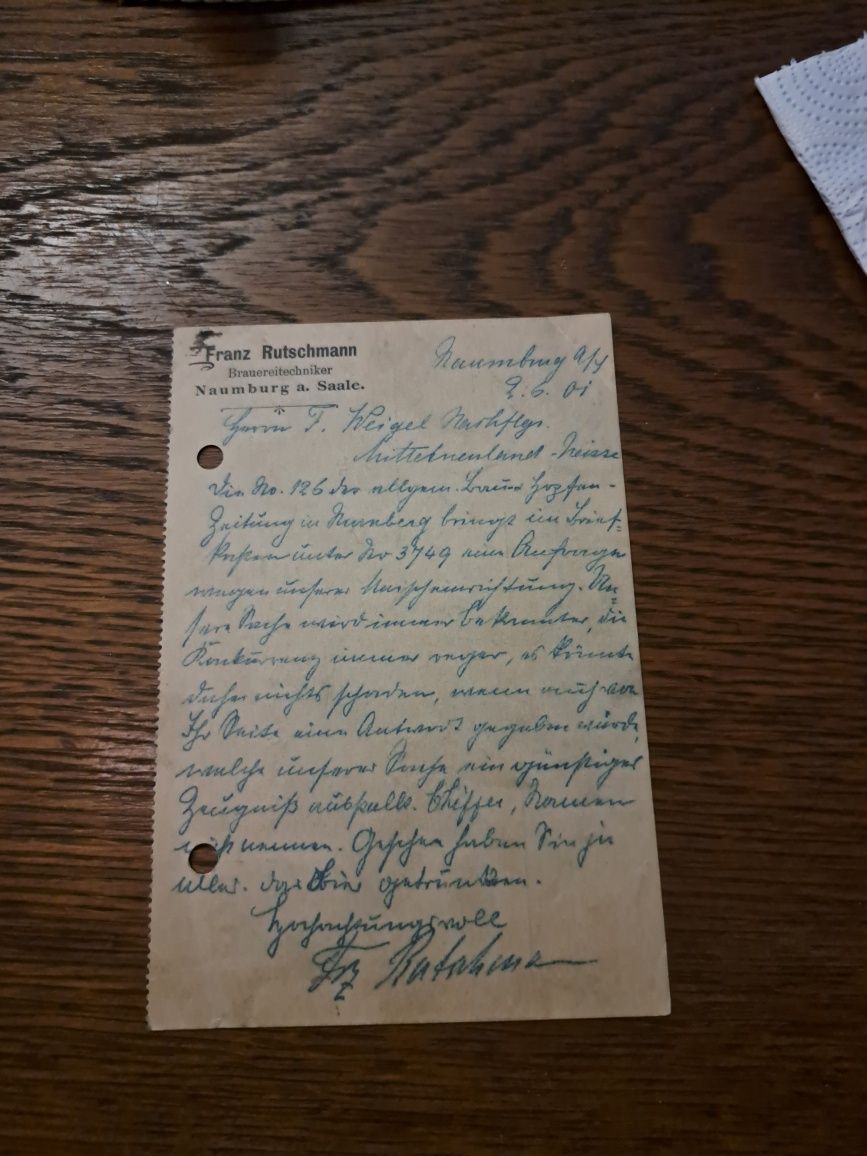 Franz Rutschmann
Brauereitechniker
Naumburg a. Saale.
Naumburg a/S
2. 6. 01
Herrn F. Weigel Nachflgr.
Mittelneuland-Neisse
Die No. 126 der allgem. Brau- u. Hopfen-
Zeitung in Nürnberg bringt im Brief-
kasten unter No 3749 eine Anfrage
wegen unserer Maischeinrichtung. Un-
sere Sache wird immer bekannter, die
Konkurrenz immer reger, es könnte
daher nichts schaden, wenn auch von
Ihr Seite eine Antwort gegeben würde,
welche unserer Sache ein günstiges
Zeugniß ausstellt. Chiffre, Namen
nicht nennen. Gesehen haben Sie ja
alles. das Bier getrunken.
Hochachtungsvoll
Frz Rutschmann